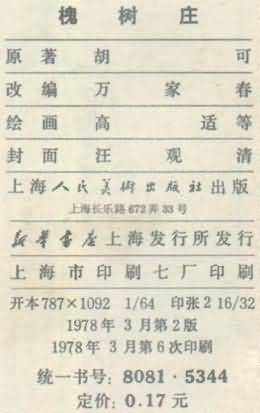 槐树庄
原著 胡可
改编 万家春
绘画 高适等
封面 汪观清
上海人民美術出版社出版
上海长乐路672弄33号
新华书店上海发行所发行
上海市印刷七厂印刷
开本787×1092 1/64 印张2 16/32
1978年3月第2版
1978年3月第6次印刷
统一书号：8081·5344
定价：0.17元